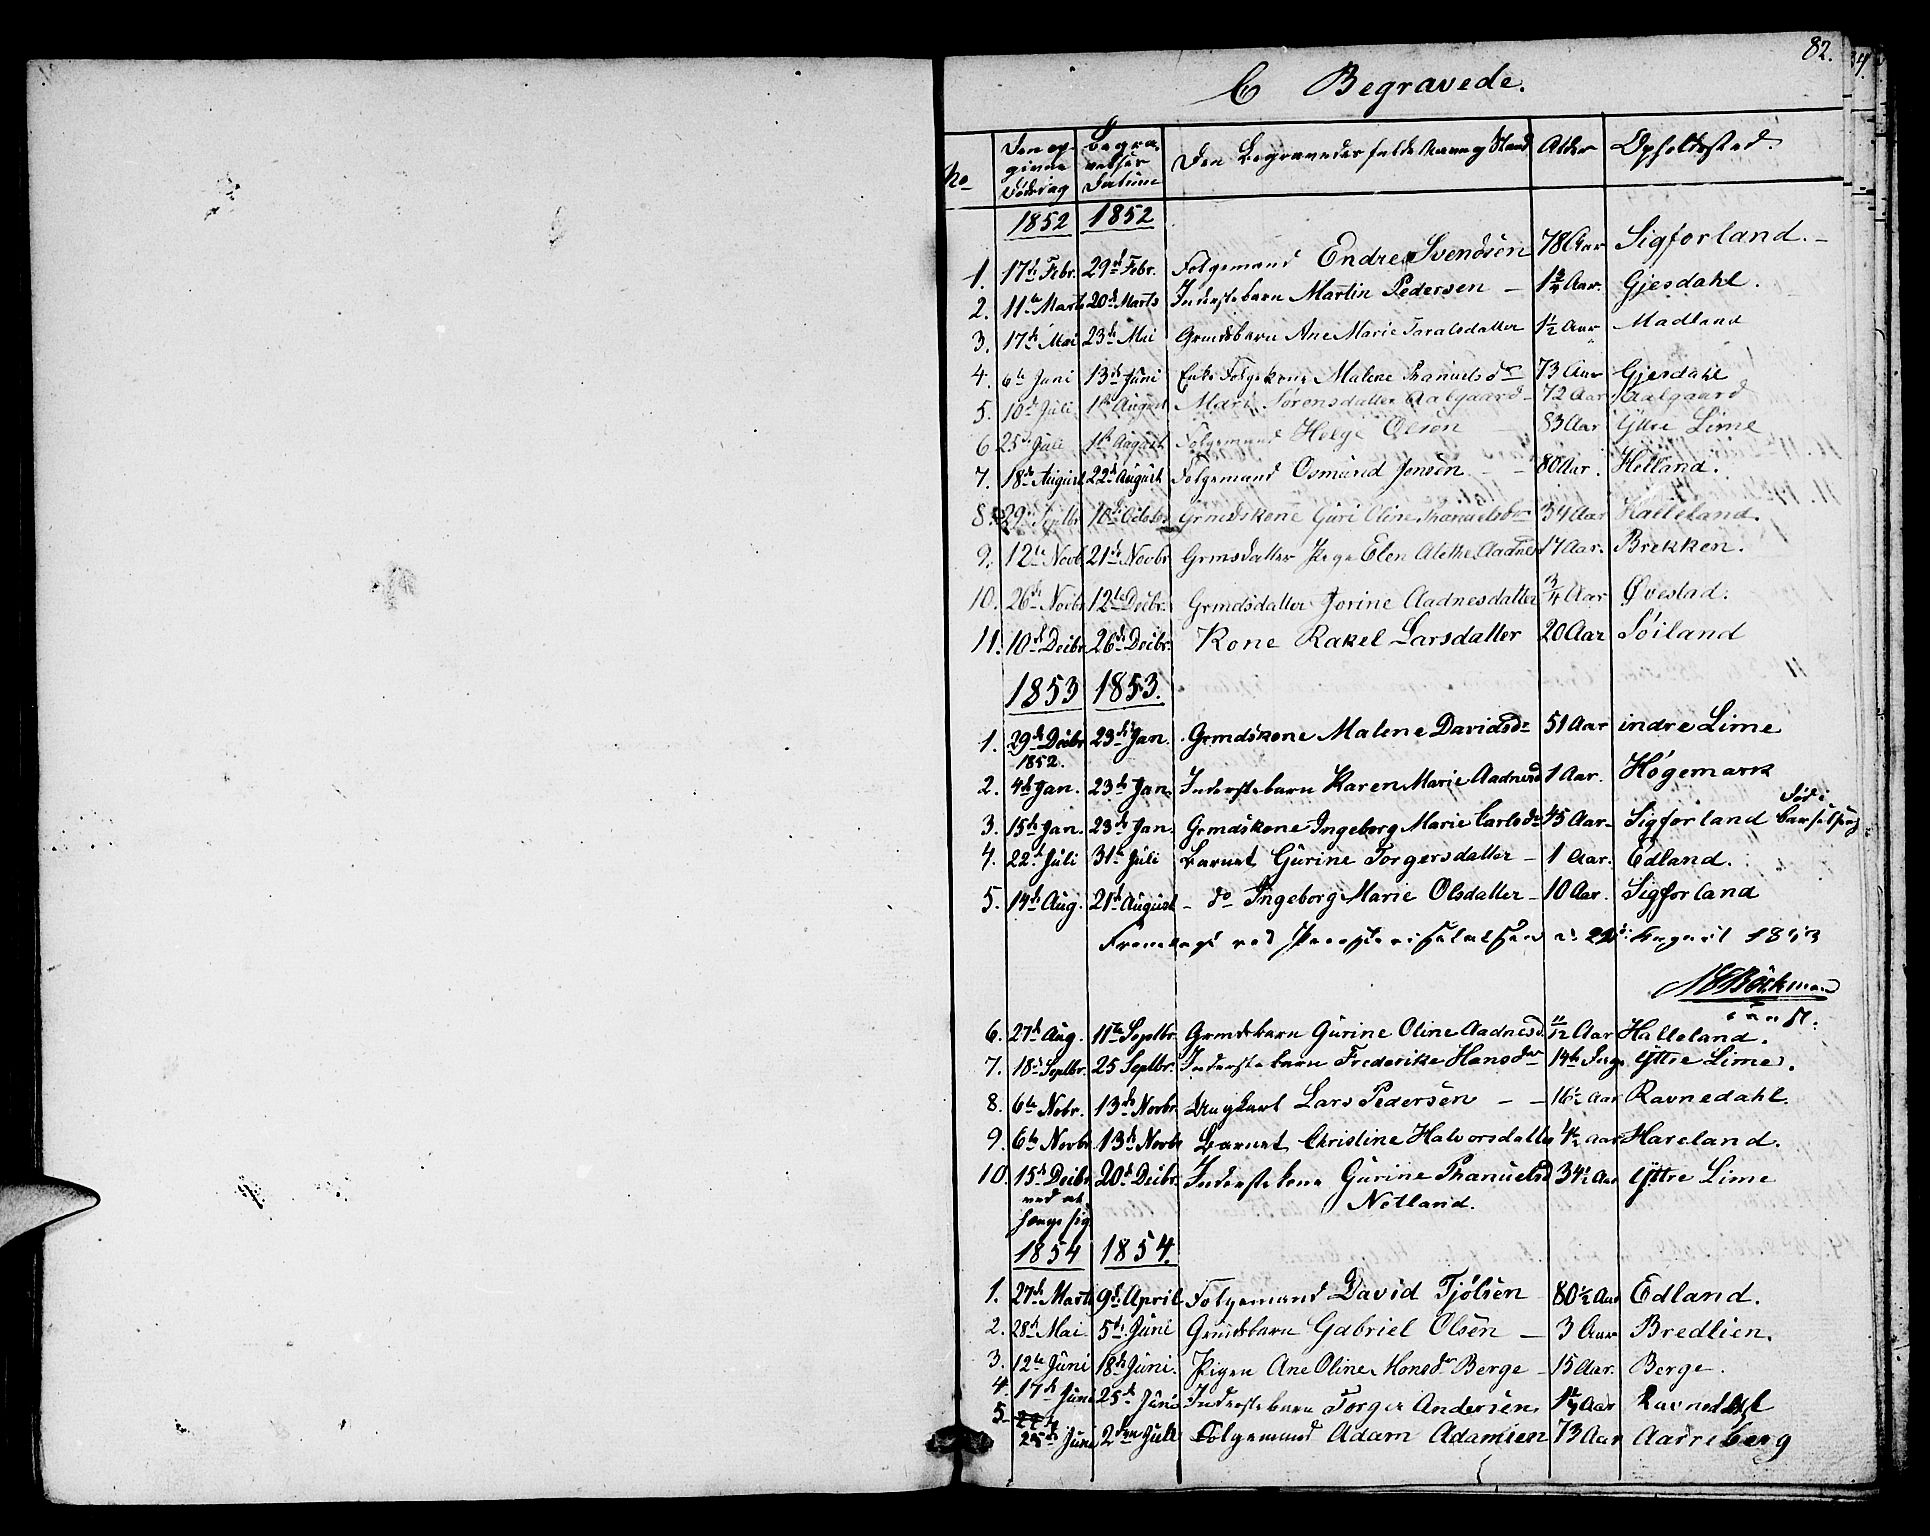 82.
C Begravede.
No
Den op-
givne
Dødsdag
Begra-
velses
Datum
Den Begravedes fulde Navn og Stand
Alder
Opholdssted
1852 1852
1. 17de Febr. 29de Febr. Folgemand Endre Svendsen 78 Aar Sigforland.
2. 11te Marts 20de Marts Inderstebarn Martin Pedersen Aar. Gjesdahl.
3. 17de Mai 23de Mai Grmdsbarn Ane Marie Taralsdatter 1½ Aar Madland
4. 6te Juni 13de Juni Enke Folgekone Malene Thanuelsdr 73 Aar Gjesdahl
5. 10de Juli 1ste August Mari Sørensdatter Aalgaard 72 Aar Aalgaard
6 25de Juli 1ste August Folgemand Helge Olsen 83 Aar Yttre Lime
7. 18de August 22de August Folgemand Osmund Jonsen 80 Aar. Helland.
8. 29de Septbr. 10de October Grmdskone Guri Oline Thanuelsdr 34 Aar Halleland.
9. 12te Novb. 21de Novbr Grmsdatter Pige Elen Alethe Aadnes 17 Aar. Brekken.
10. 26de Novbr 12te Decbr. Grmdsdatter Jorine Aadnesdatter 3/4 Aar Øvestad.
11. 10de Decbr. 26de Decbr. Kone Rakel Larsdatter 20 Aar Søiland
1853 1853.
1. 29de Decbr 23de Jan. Grmdskone Malene Davidsdr 51 Aar indre Lime
1852.
2. 4de Jan. 23de Jan. Inderstebarn Karen Marie Aadnesd 1 Aar. Høgemark
3. 15de Jan. 23de Jan. Grmdskone Ingeborg Marie Carlsdr 45 Aar Sigforland Død i
Barselseng
4. 22de Juli 31te Juli Barnet Gurine Torgersdatter 1 Aar. Edland.
5. 14de Aug. 21de August do Ingeborg Marie Olsdatter 10 Aar. Sigforland
Fremlagt ved Provstevisitatsen d: 22de August 1853
Böckman
const.
6. 27de Aug. 11te Septbr. Grmdsbarn Gurine Oline Aadnesd. 11/12 Aar Halleland.
7. 18de Septbr. 25 Septbr. Inderstebarn Frederikke Hansdr 14 Dage Yttre Lime.
8. 6te Nobr. 13de Novbr. Ungkarl Lars Pedersen 16½ Aar Ravnedahl.
9. 6te Novbr 13de Novbr Barnet Christine Halvorsdatter 4½ Aar Hareland.
10. 15de Decbr. 20de Decbr. Inderstekone Gurine Thanuelsd 34½ Aar Yttre Lime
ved at Netland.
hænge sig
1854 1854.
1. 27de Marts 9de April Folgemand David Tjølsen 80½ Aar Edland.
2. 28de Mai 5te Juni Grmdsbarn Gabriel Olsen 3 Aar Bredlien.
3. 12te Juni 18de Juni. Pigen Ane Oline Monsdr Berge 15 Aar. Berge.
4. 17de Juni 25de Juni Inderstebarn Torger Andersen Aar Ravnedahl
5. 25de Juni 2den Juli Folgemand Adam Adamsen 73 Aar Aarreberg